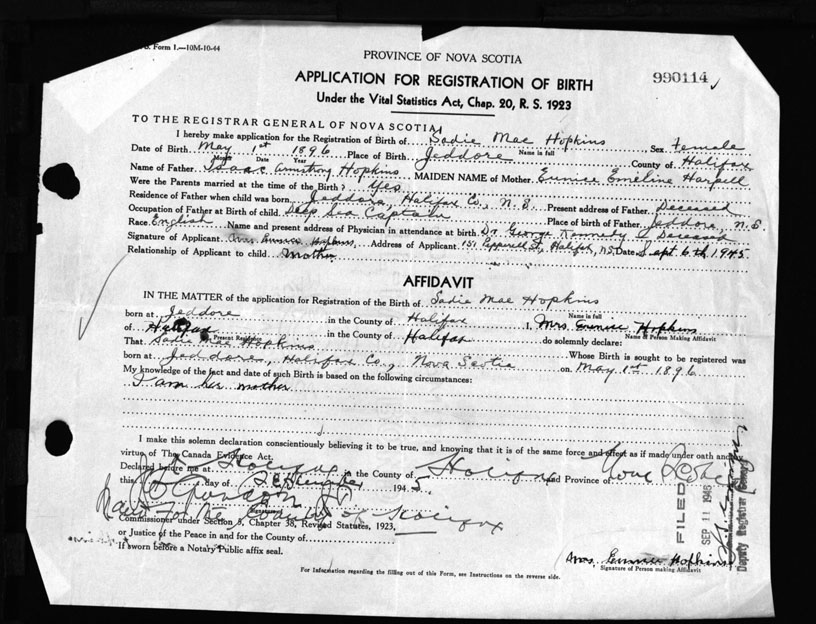 Form 1.—10M-10-44
PROVINCE OF NOVA SCOTIA
APPLICATION FOR REGISTRATION OF BIRTH
990114
Under the Vital Statistics Act, Chap. 20, R. S. 1923
TO THE REGISTRAR GENERAL OF NOVA SCOTIA:
I hereby make application for the Registration of Birth of Sadie Mae Hopkins, Sex Female
Name in full
Date of Birth May 1st 1896 Place of Birth Jeddore County of Halifax
Month Date Year
Name of Father Isaac Armstrong Hopkins MAIDEN NAME of Mother Eunice Emeline Harpell
Were the Parents married at the time of the Birth? Yes
Residence of Father when child was born, Jeddore, Halifax Co., N. S. Present address of Father Deceased
Occupation of Father at Birth of child Deep Sea Captain Place of Birth of Father Jeddore, N. S.
Race English Name and present address of Physician in attendance at birth Dr. George Kennedy Deceased
Signature of Applicant Mrs Eunice Hopkins Address of Applicant 151 Pepperell St, Halifax, NS Date Sept 6th 1945
Relationship of Applicant to child mother
AFFIDAVIT
IN THE MATTER of the application for Registration of the Birth of Sadie Mae Hopkins
Name in full
born at Jeddore in the County of Halifax I, Mrs. Eunice Hopkins
Name of Person Making Affidavit
of Halifax in the County of Halifax do solemnly declare:
Present Residence
That Sadie Mae Hopkins Whose Birth is sought to be registered was
born at Jeddore, Halifax Co., Nova Scotia on May 1st 1896
My knowledge of the fact and date of such Birth is based on the following circumstances:
I am her mother
I make this solemn declaration conscientiously believing it to be true, and knowing that it is of the same force and effect as if made under oath and by
virtue of The Canada Evidence Act.
Declared before me at Halifax in the County of Halifax and Province of Nova Scotia
this day of September 1945
Commissioner under Section 5, Chapter 38, Revised Statutes, 1923,
or Justice of the Peace in and for the County of
If sworn before a Notary Public affix seal.
Mrs. Eunice Hopkins
Signature of Person making Affidavit
For Information regarding the filling out of this Form, see Instructions on the reverse side.
FILED
SEP 11 1946
Deputy Registrar General